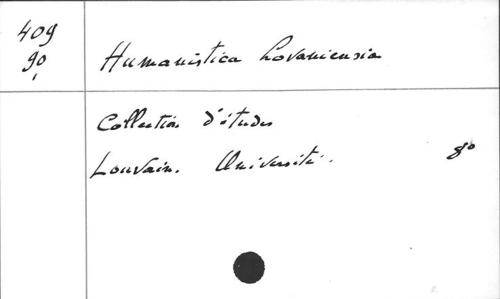 409
90
Humanistica Lovaniensia
Collection d'études
Louvain. Université.
8°